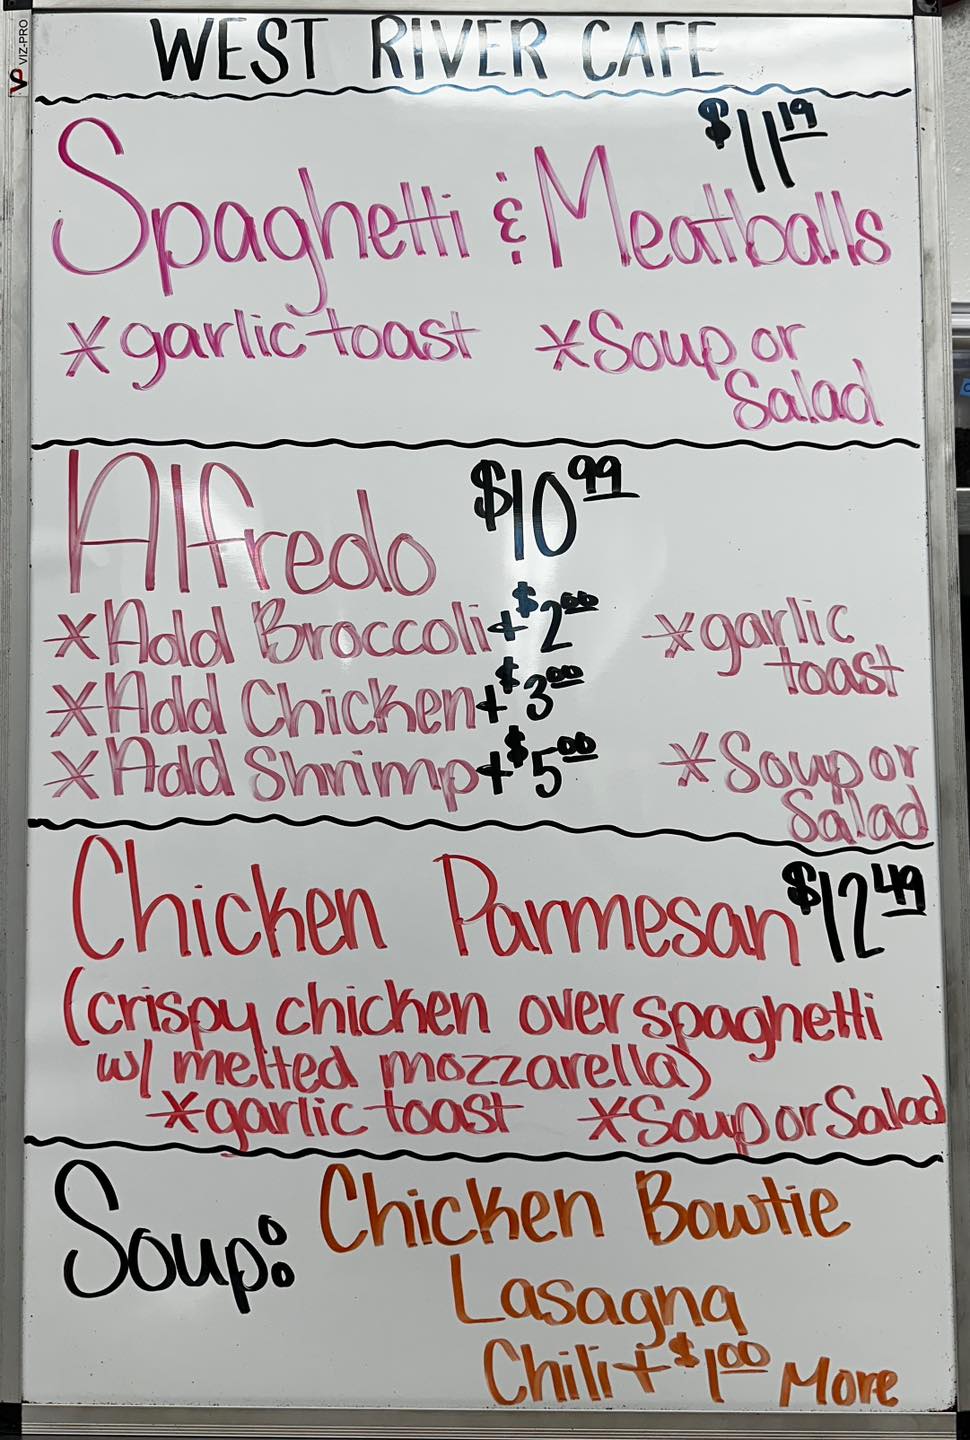 VP VIZ-PRO
WEST RIVER CAFE
$11.19
Spaghetti & Meatballs
*garlic toast *Soup or
Salad
Alfredo $10.99
*Add Broccoli +$2.00 *garlic
toast
*Add Chicken +$3.00
*Add Shrimp +$5.00 *Soup or
Salad
Chicken Parmesan $12.49
(crispy chicken over spaghetti
w/ melted mozzarella)
*garlic toast *Soup or Salad
Soup: Chicken Bowtie
Lasagna
Chili + $1.00 More